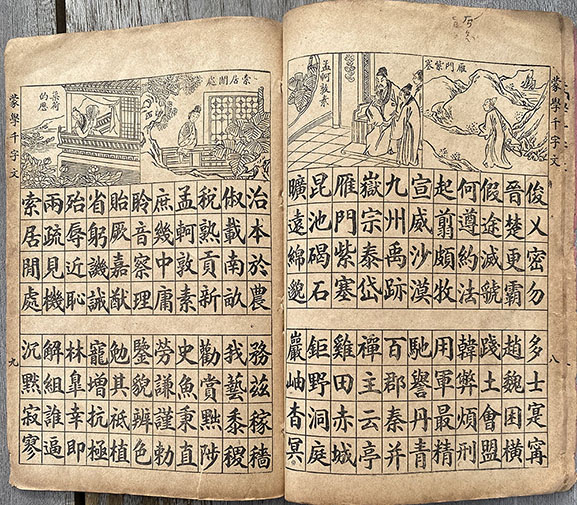 蒙學千字文
八
雁門紫塞
孟軻敦素
俊乂密勿
晉楚更霸
假途滅虢
何遵約法
起翦頗牧
宣威沙漠
九州禹跡
嶽宗泰岱
雁門紫塞
昆池碣石
曠遠綿邈
多士寔寧
趙魏困橫
踐土會盟
韓弊煩刑
用軍最精
馳譽丹青
百郡秦并
禪主云亭
雞田赤城
鉅野洞庭
巖岫杳冥
索居閒處
渠荷的歷
治本於農
俶載南畝
稅熟貢新
孟軻敦素
庶幾中庸
聆音察理
貽厥嘉猷
省躬譏誡
殆辱近恥
兩疏見機
索居閒處
務茲稼穡
我藝黍稷
勸賞黜陟
史魚秉直
勞謙謹勅
鑒貌辨色
勉其祗植
寵增抗極
林皋幸即
解組誰逼
沉默寂寥
蒙學千字文
九